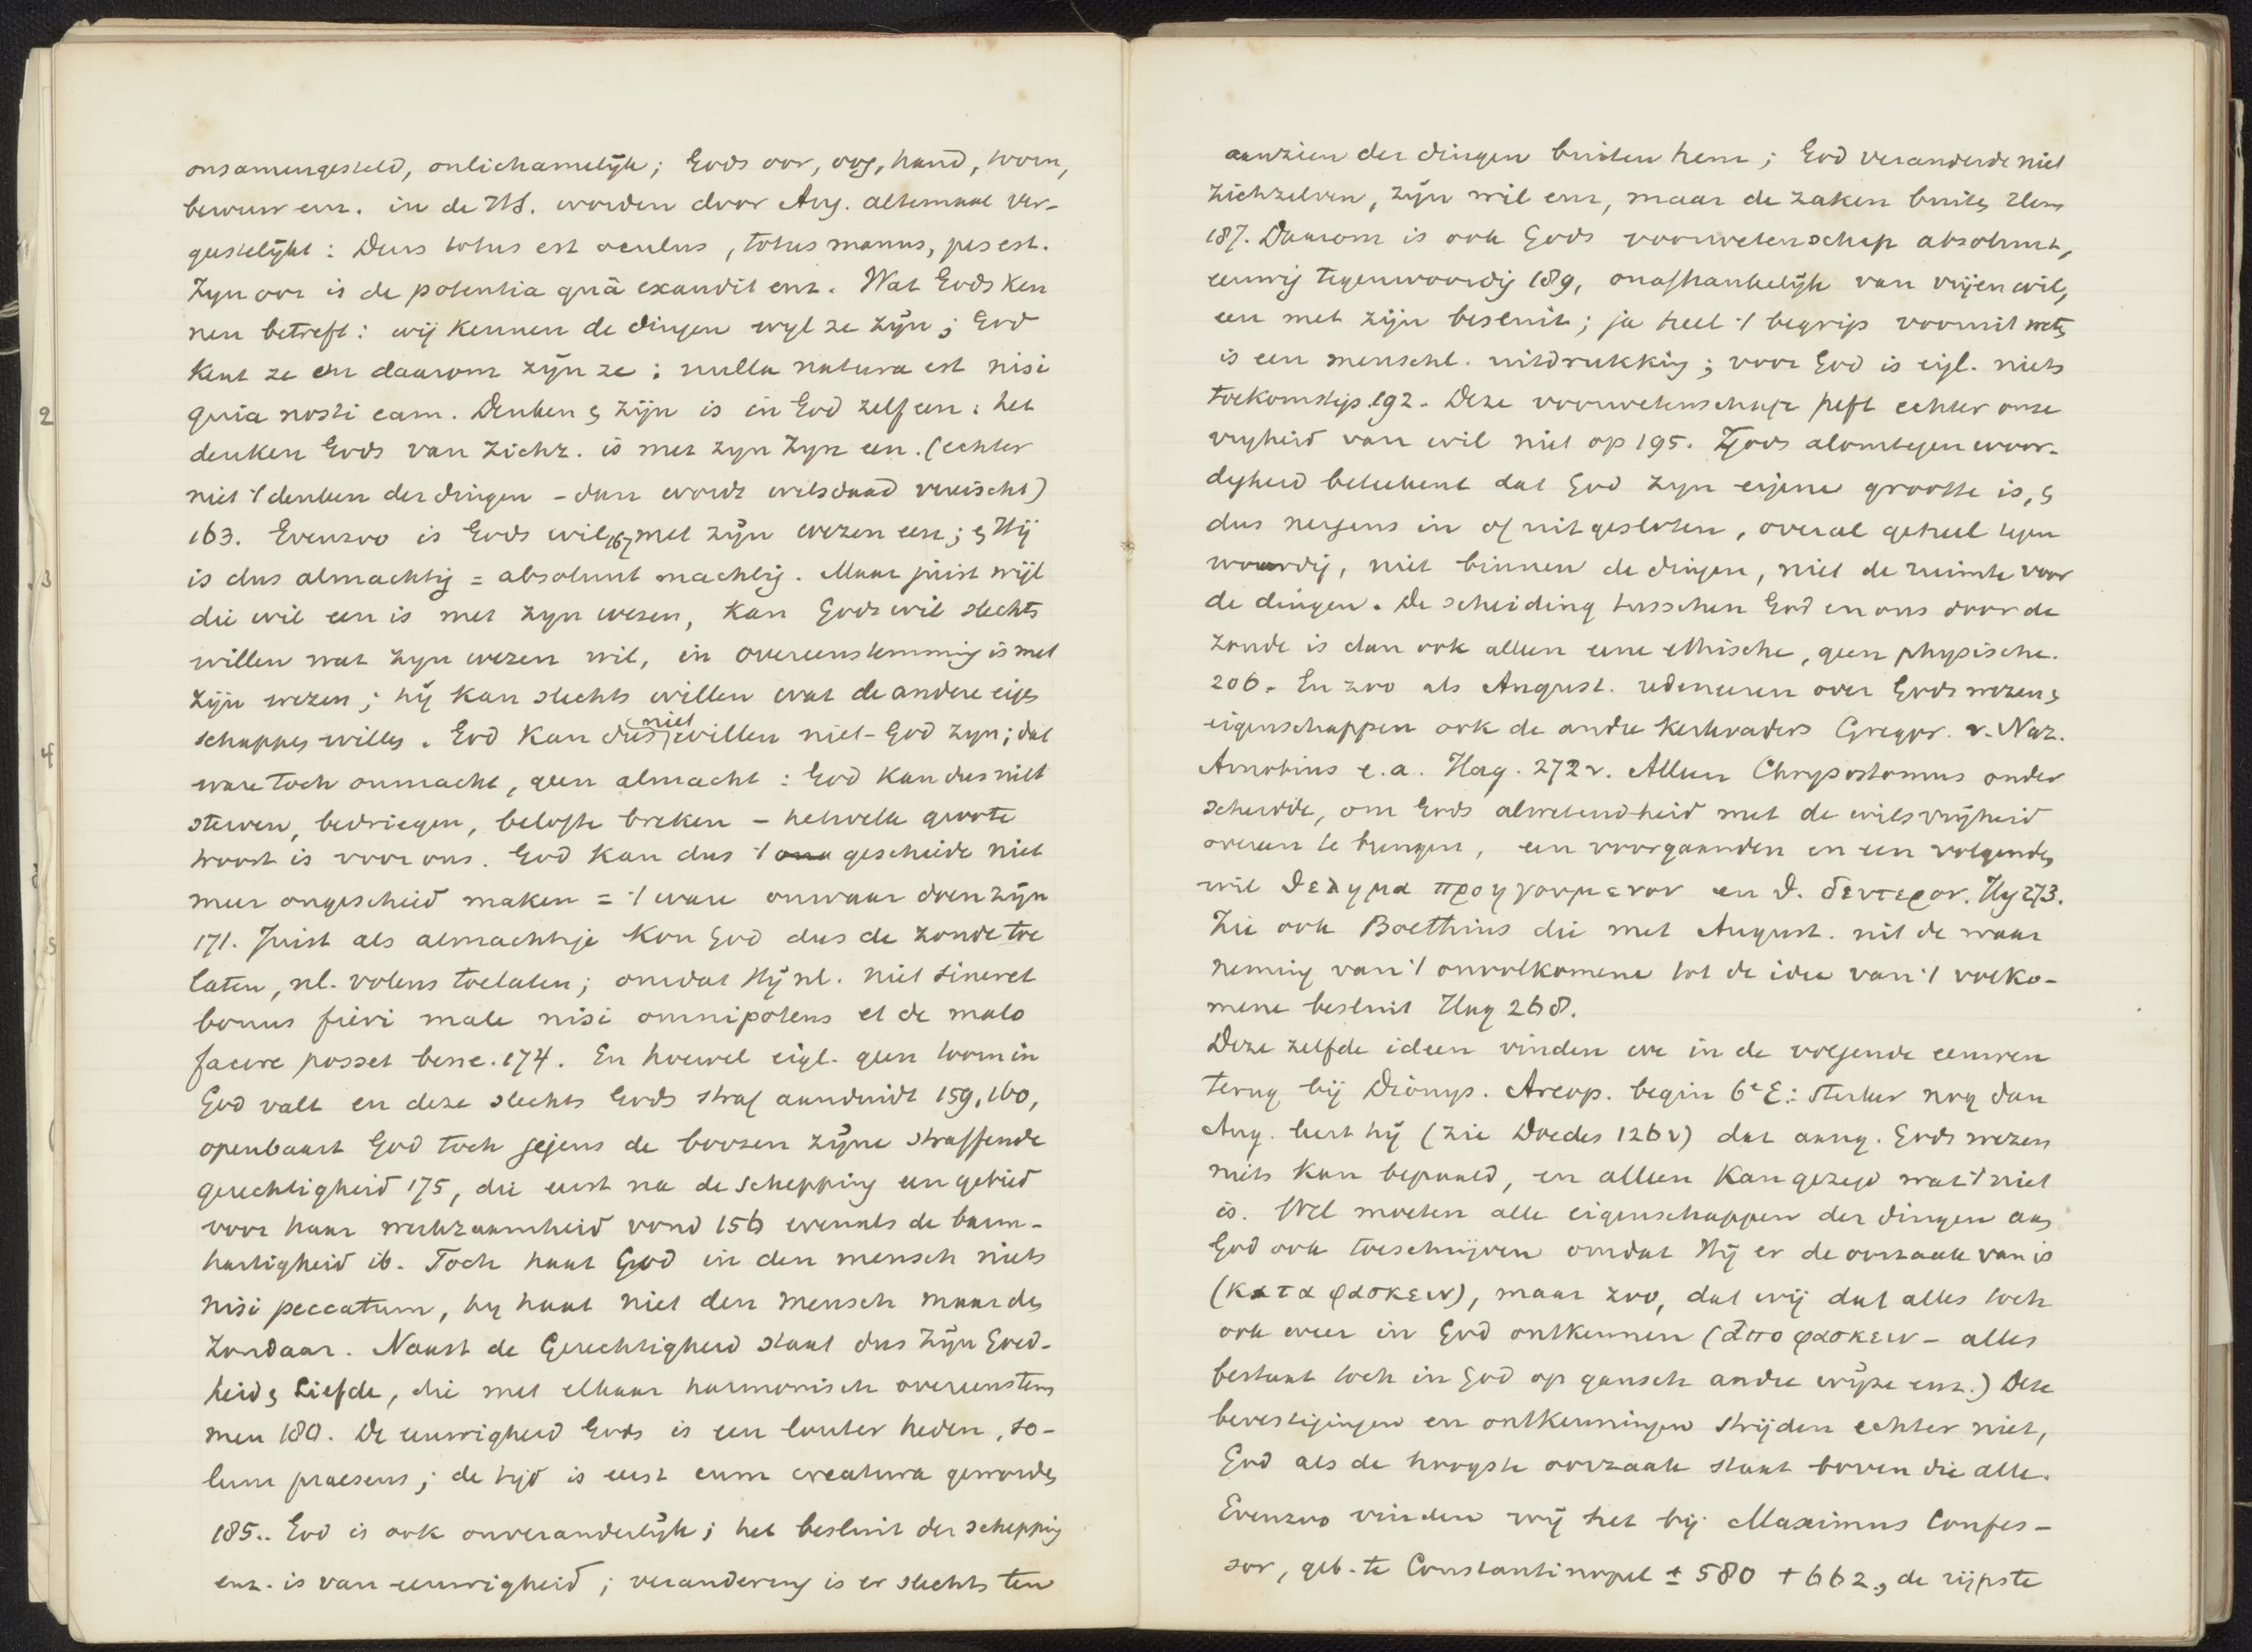 onsamengesteld, onlichamelijk; Gods oor, oog, hand, toorn,
berouw enz. in de H.S. worden door Aug. altemaal ver-
geestelijkt: Deus totus est oculus, totus manus, pes est.
Zyn oor is de potentia quâ exaudit enz. Wat Gods ken
nen betreft: wij kennen de dingen wyl ze zijn; God
kent ze en daarom zijn ze: nulla natura est nisi
quia nosti eam. Denken & zijn is in God zelf een: het
denken Gods van zichz. is met zyn zyn een. (echter
niet 't denken der dingen - dan wordt wilsdaad vereischt)
163. Evenzoo is Gods wil 167 met zijn wezen een; & Hij
is dus almachtig = absoluut machtig. Maar juist wijl
die wil een is met zyn wezen, kan Gods wil slechts
willen wat zyn wezen wil, in overeenstemming is met
zijn wezen; hij kan slechts willen wat de andere eigen
schappen willen. God kan dus niet willen niet-God zyn; dat
ware toch onmacht, geen almacht: God kan dus niet
sterven, bedriegen, belofte breken - hetwelk groote
troost is voor ons. God kan dus 't geschiede niet
meer ongeschied maken = 't ware onwaar doen zijn
171. Juist als almachtige kon God dus de zonde toe
laten, nl. volens toelaten; omdat Hij nl. niet sineret
bonus fieri male nisi omnipotens et de malo
facere posset bene. 174. En hoewel eigl. geen toorn in
God valt en deze slechts Gods straf aanduidt 159, 160,
openbaart God toch jegens de boozen zijne straffende
gerechtigheid 175, die eerst na de schepping een gebied
voor haar werkzaamheid vond 156 evenals de barm-
hartigheid ib. Toch haat God in den mensch niets
nisi peccatum, hy haat niet den mensch maar den
zondaar. Naast de Gerechtigheid staat dus zijn Goed-
heid & Liefde, die met elkaar harmonisch overeenstem
men 180. De eeuwigheid Gods is een louter heden, so-
lum praesens; de tijd is eerst cum creatura geworden
185.. God is ook onveranderlijk; het besluit der schepping
enz. is van eeuwigheid; verandering is er slechts ten
aanzien der dingen buiten hem; God veranderde niet
zichzelven, zijn wil enz, maar de zaken buiten Hem
187. Daarom is ook Gods voorwetenschap absoluut,
eeuwig tegenwoordig 189, onafhankelijk van vrijen wil,
een met zijn besluit; ja heel 't begrip vooruit weten
is een menschl. uitdrukking; voor God is eigl. niets
toekomstigs 192. Deze voorwetenschap heft echter onze
vryheid van wil niet op 195. Gods alomtegenwoor-
digheid beteekent dat God zyn eigene grootte is, &
dus nergens in of uitgesloten, overal geheel tegen
woordig, niet binnen de dingen, niet de ruimte voor
de dingen. De scheiding tusschen God en ons door de
zonde is dan ook alleen eene ethische, geen physische.
206. En zoo als August. redeneeren over Gods wezen &
eigenschappen ook de andre kerkvaders Gregor. v. Naz.
Arnobius e.a. Hag. 272 v. Alleen Chrysostomus onder
scheidde, om Gods alwetendheid met de wilsvrijheid
overeen te brengen, een voorgaanden en een volgenden
wil θελημα προηγουμενον en θ. δευτερον. Hag 273.
Zie ook Boethius die met August. uit de waar
neming van 't onvolkomene tot de idee van 't volko-
mene besluit Hag 268.
Deze zelfde ideen vinden we in de volgende eeuwen
terug bij Dionys. Areop. begin 6e E: sterker nog dan
Aug. leert hij (zie Doedes 126 v) dat aang. Gods wezen
niets kan bepaald, en alleen kan gezegd wat 't niet
is. Wel moeten alle eigenschappen der dingen aan
God ook toeschrijven omdat Hij er de oorzaak van is
(κατα φασκειν), maar zoo, dat wij dat alles toch
ook weer in God ontkennen (ἀπο φασκειν - alles
bestaat toch in God op gansch andre wijze enz.) Deze
bevestigingen en ontkenningen strijden echter niet,
God als de hoogste oorzaak staat boven die alle.
Evenzoo vinden wij het bij Maximus Confes-
sor, geb. te Constantinopel ± 580 + 662, de rijpste
2
3
4
5